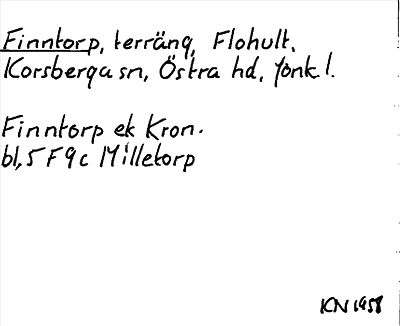 Finntorp, terräng, Flohult,
Korsberga sn, Östra hd, Jönk. l.
Finntorp ek Kron.
bl, 5 F 9 c Milletorp
KN 1958